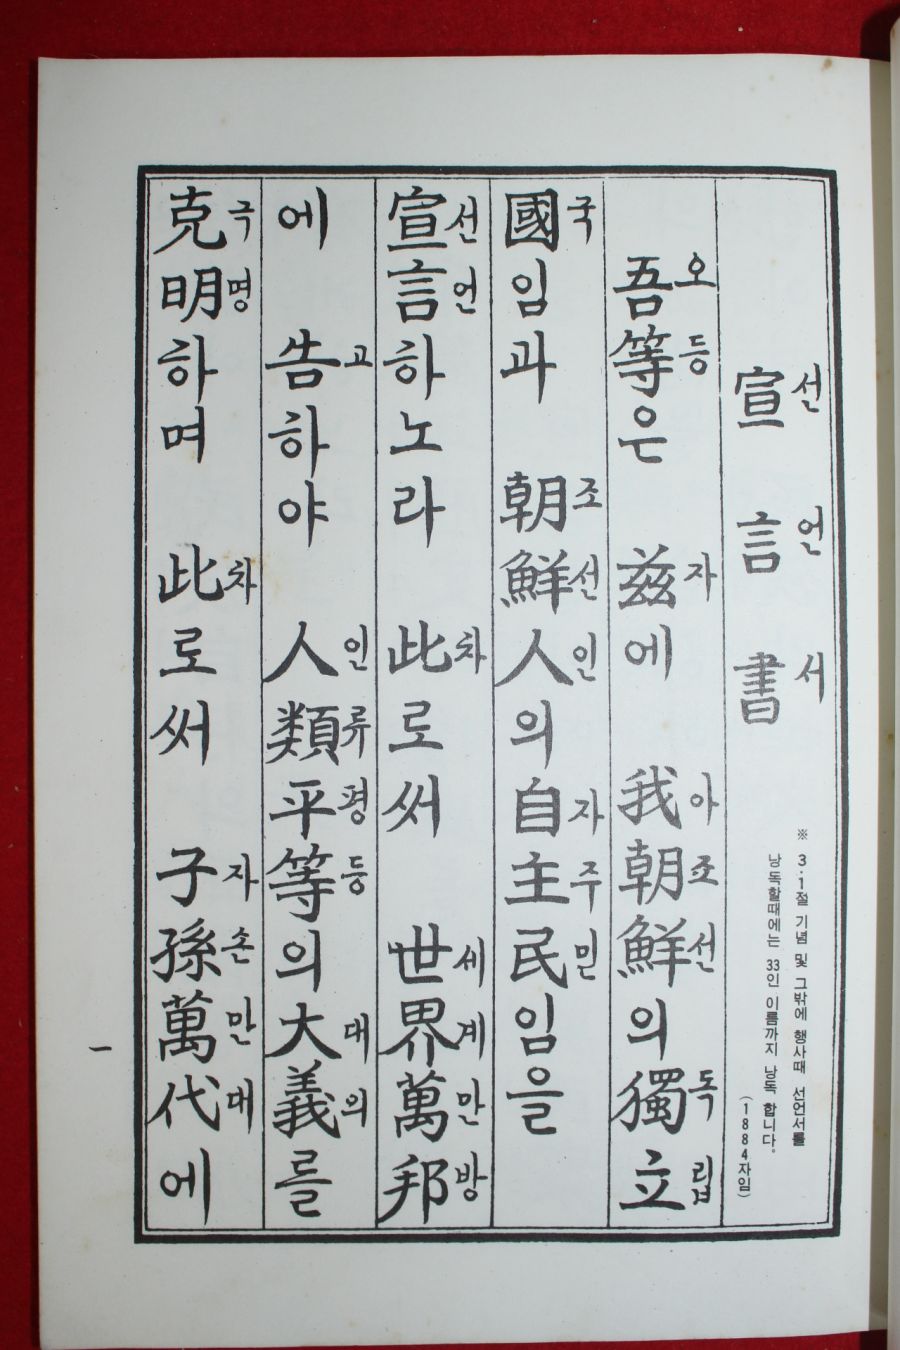 선언서
宣言書
※ 3·1절 기념 및 그밖에 행사때 선언서를
낭독할때에는 33인 이름까지 낭독 합니다.
(1884자임)
오등 자 아조선 독립
吾等은 兹에 我朝鮮의 獨立
국 조선인 자주민
國임과 朝鮮人의 自主民임을
선언 차 세계만방
宣言하노라 此로써 世界萬邦
고 인류평등 대의
에 告하야 人類平等의 大義를
극명 차 자손만대
克明하며 此로써 子孫萬代에
一